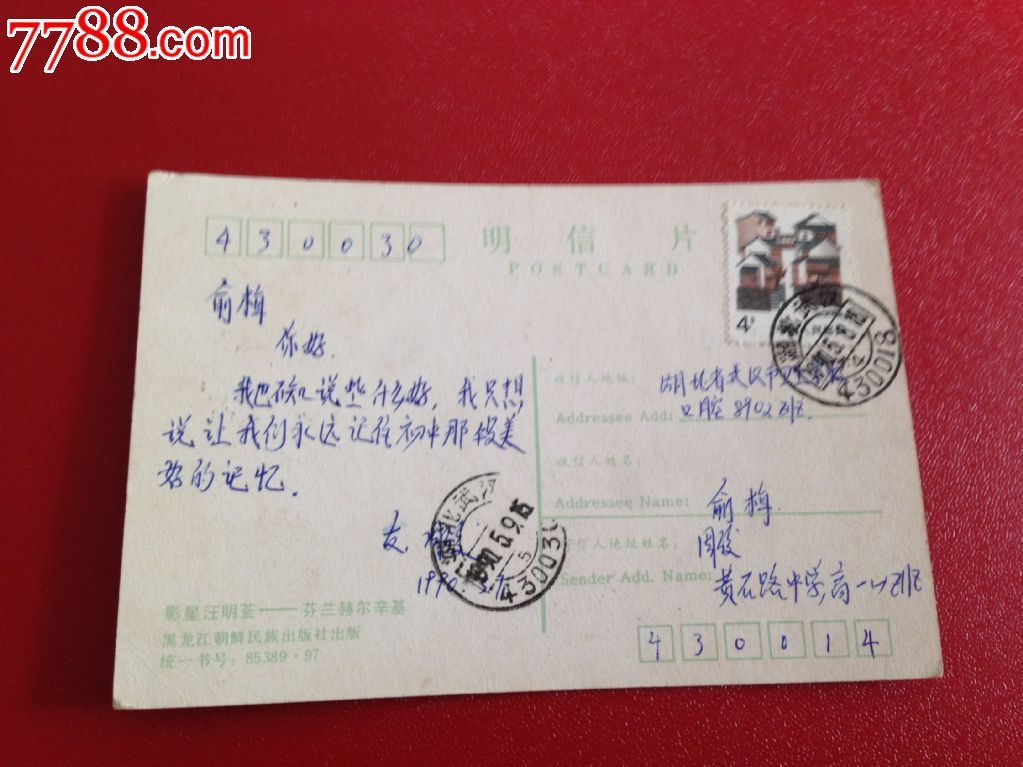 7788.com
430030
明信片
POSTCARD
4
俞梅
你好.
我也不知说些什么好,我只想
说让我们永远记住初中那段美
好的记忆.
友.
1990.
湖北武汉
1990.5.9.15
430030
湖北武汉
430018
收信人地址:
湖北省武汉市
Addressee Add:
口腔8902班.
收信人姓名:
Addressee Name:
俞梅
寄信人地址姓名:
周
Sender Add. Name:
黄石路中学,高一(1)班
430014
影星汪明荃——芬兰赫尔辛基
黑龙江朝鲜民族出版社出版
统一书号:85389·97